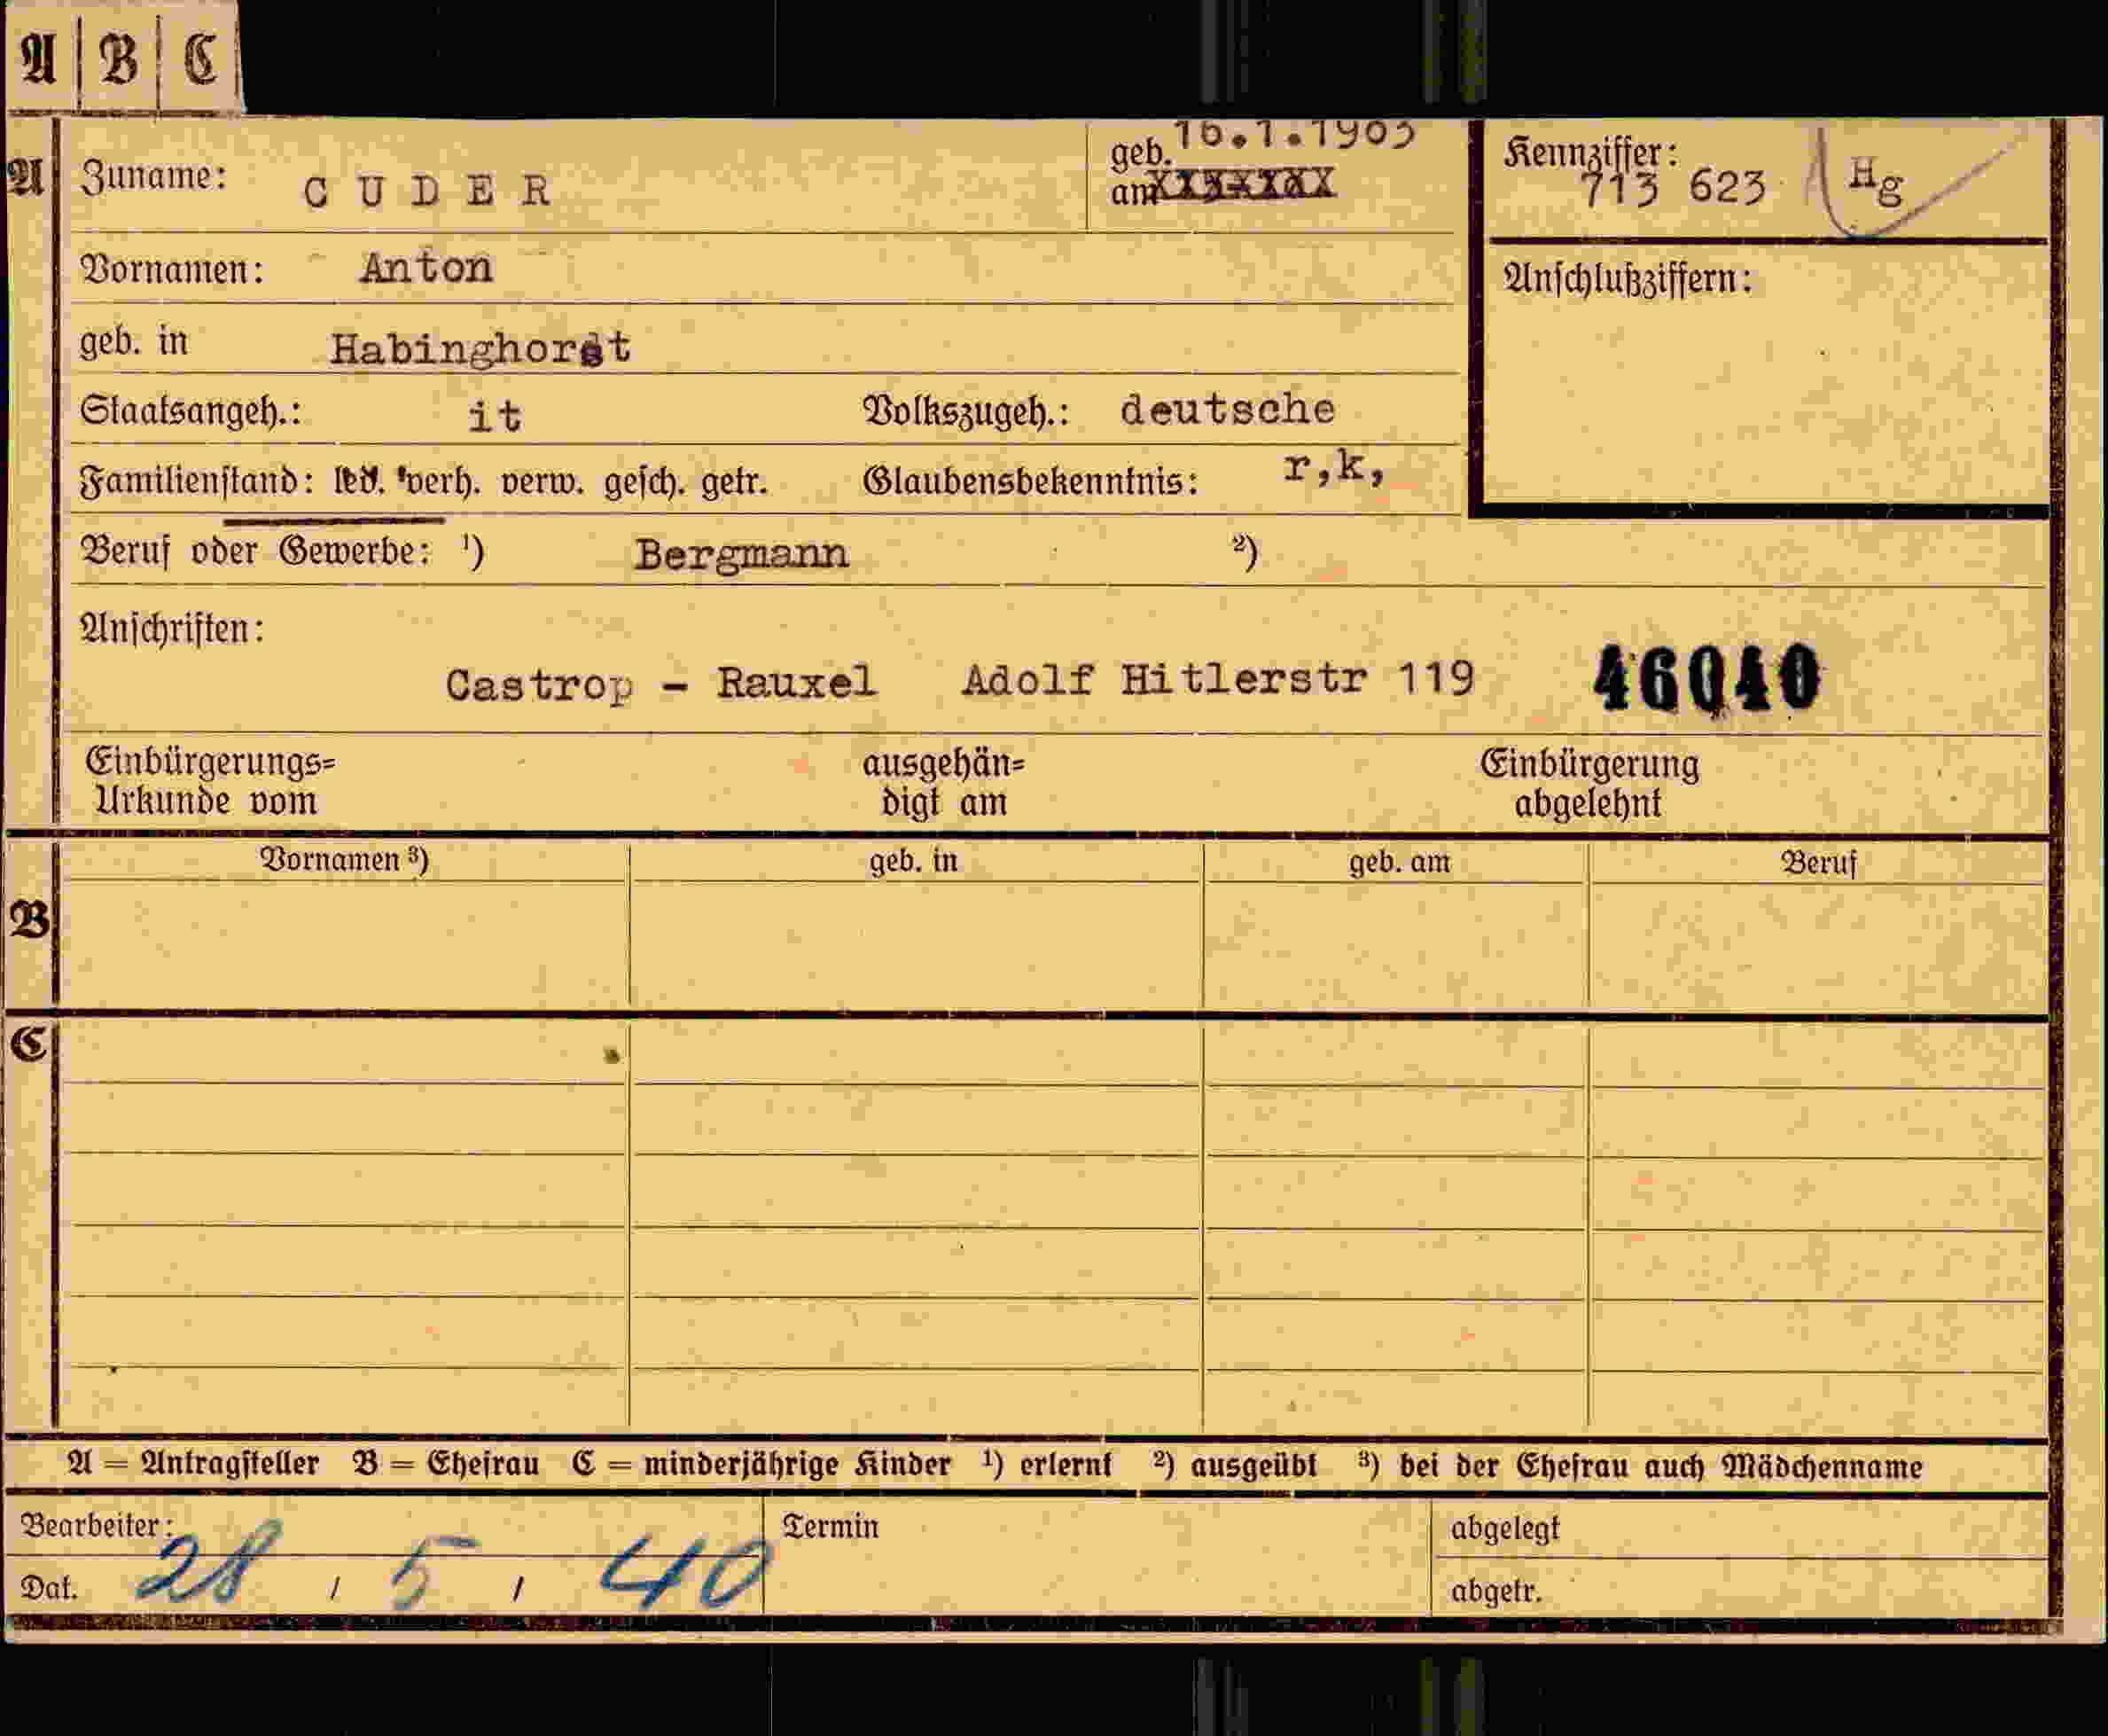 A | B | C
A
Zuname: CUDER
geb. am 16.1.1903
Kennziffer: 713 623 Hg
Vornamen: Anton
Anschlußziffern:
geb. in Habinghorst
Staatsangeh.: it Volkszugeh.: deutsche
Familienstand: led. verh. verw. gesch. getr. Glaubensbekenntnis: r,k,
Beruf oder Gewerbe: ¹) Bergmann ²)
Anschriften:
Castrop - Rauxel Adolf Hitlerstr 119 46040
Einbürgerungs= ausgehän= Einbürgerung
Urkunde vom digt am abgelehnt
Vornamen ³) geb. in geb. am Beruf
B
C
A = Antragsteller B = Ehefrau C = minderjährige Kinder ¹) erlernt ²) ausgeübt ³) bei der Ehefrau auch Mädchenname
Bearbeiter: Termin abgelegt
Dat. 28 / 5 / 40 abgetr.